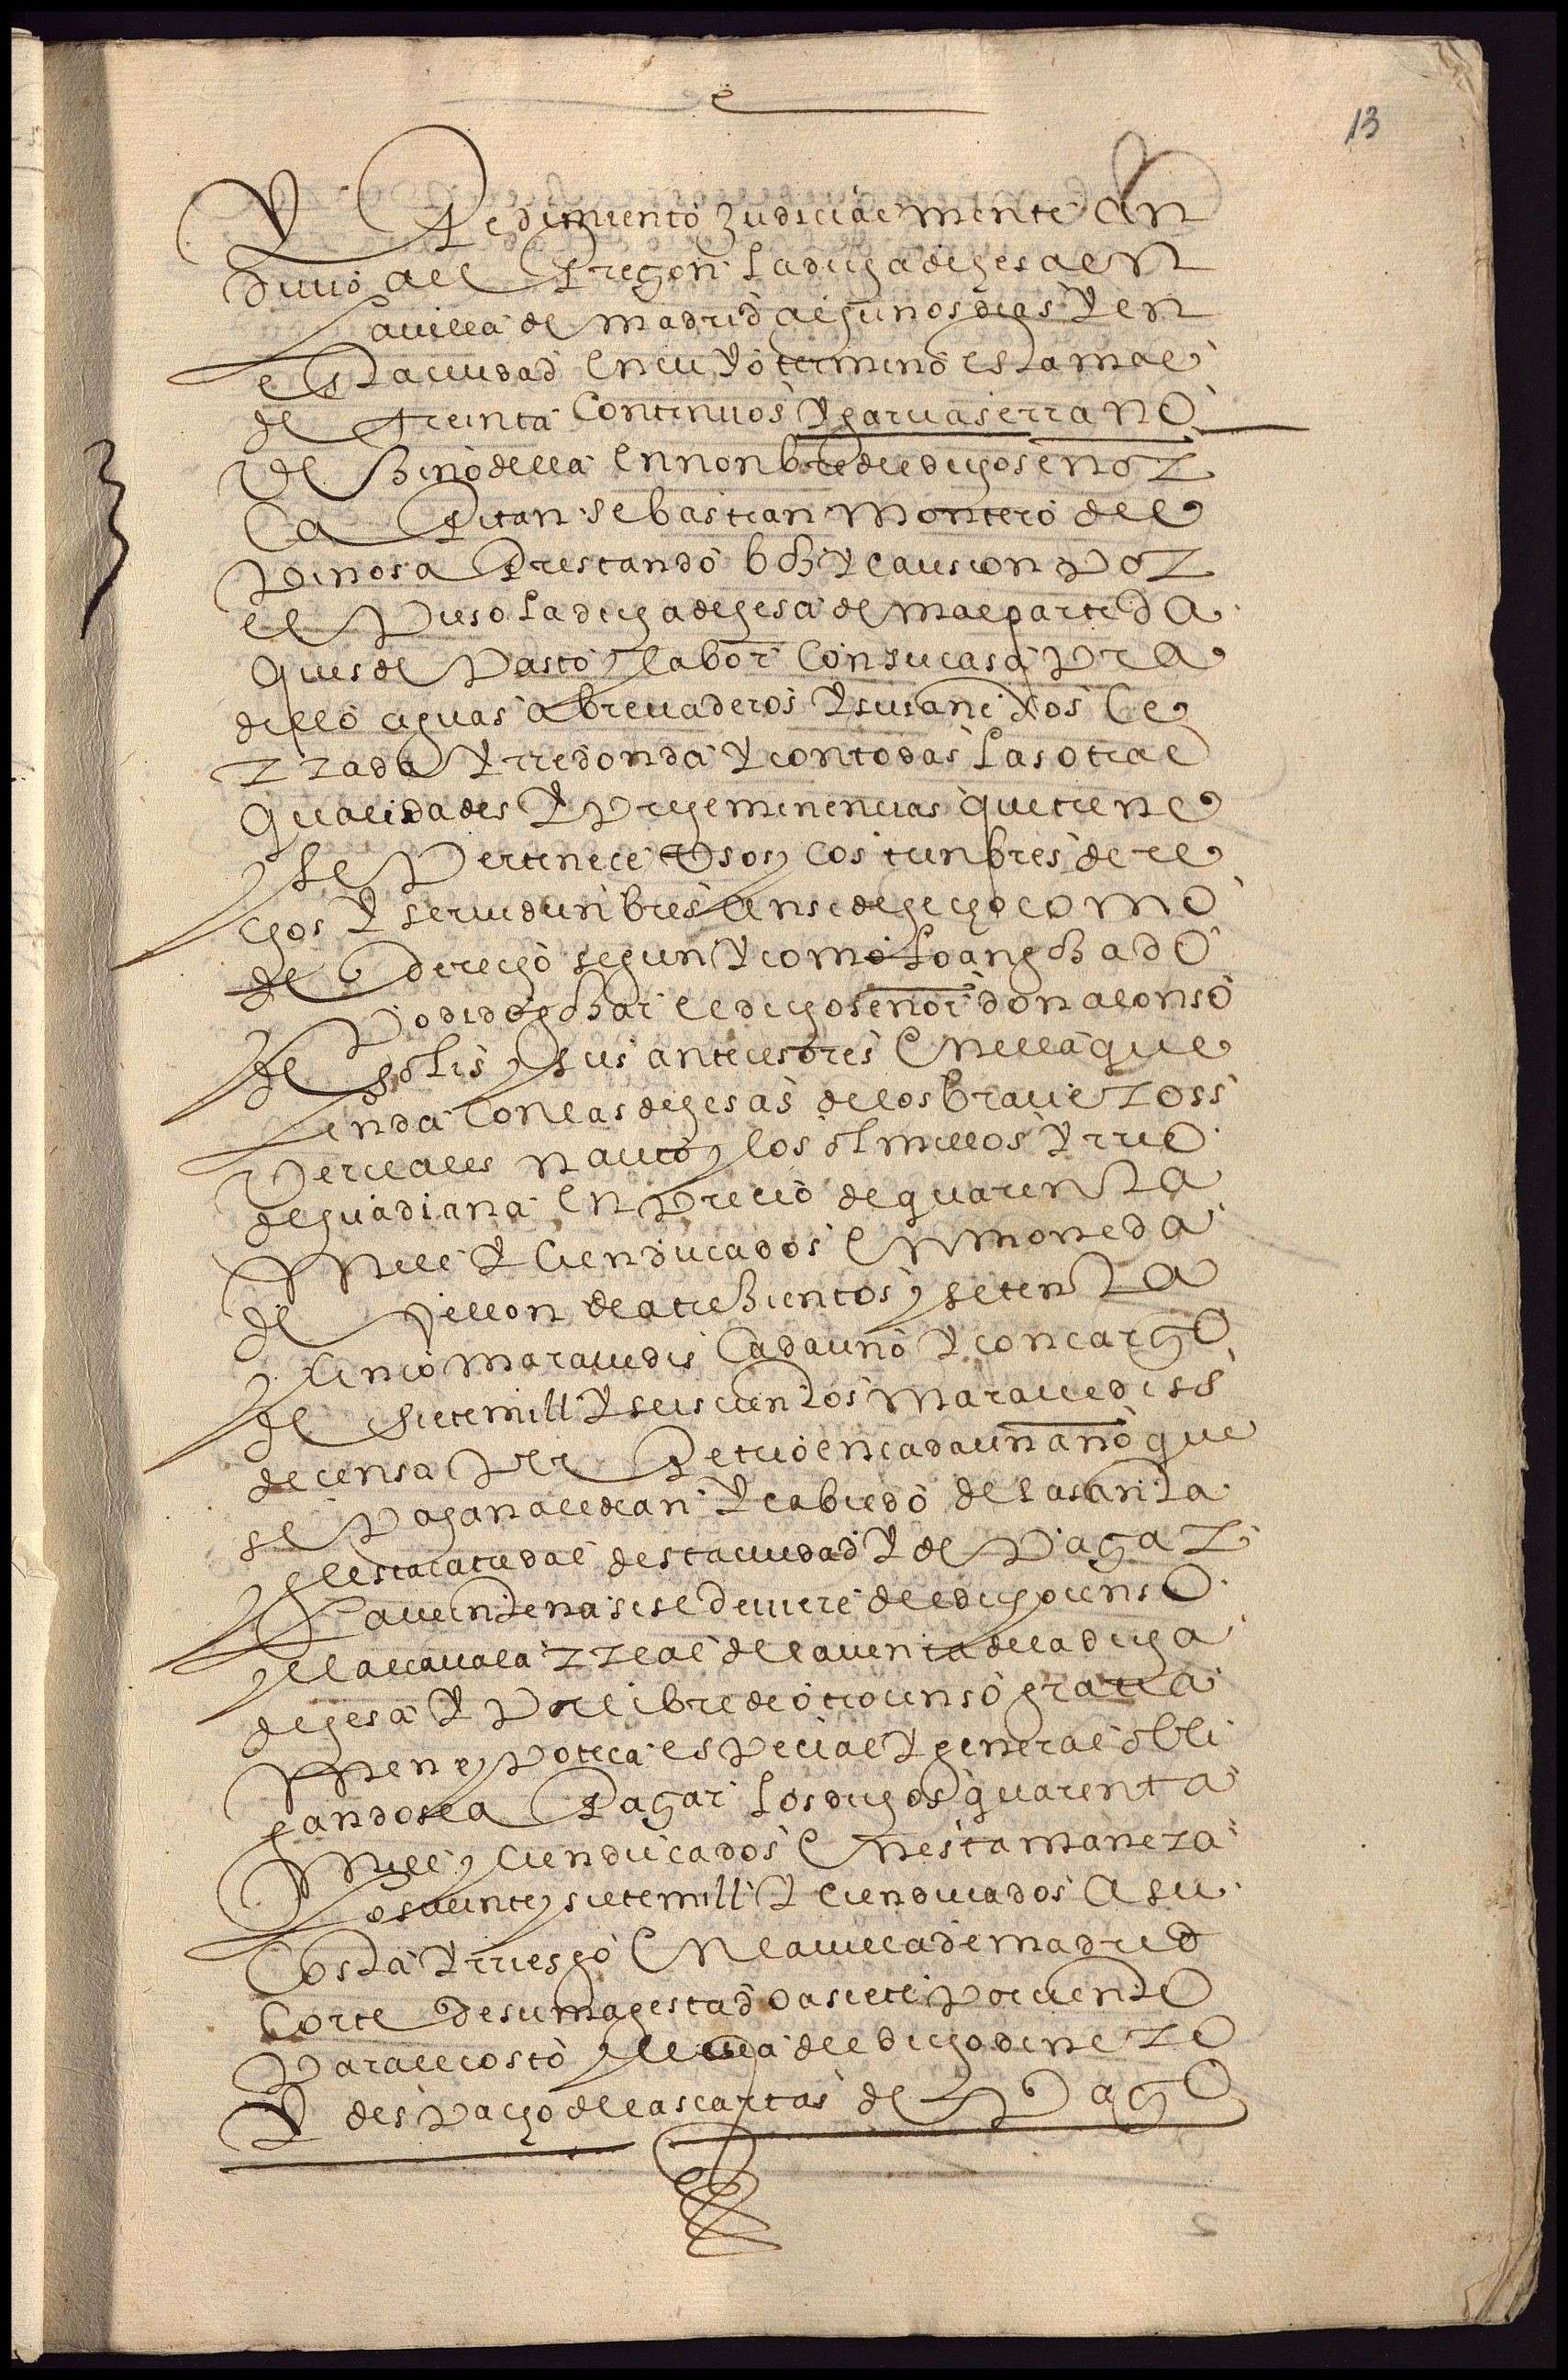 13
Y Pedimiento Judicialmente an
duuo al Pregon la dicha dehesa en
la uilla de madrid algunos dias Y en
esta ciudad en cuyo termino esta mas
de treinta continuos Y garcia serrano
vezino della en nonbre del dicho señor
Capitan sebastian montero de es
pinosa Prestando boz Y causion por
el Puso la dicha dehesa de malpartida
ques de Pasto y labor con su casa pra
dillo aguas abreuaderos Y sus anidos ce
rrada Y rredonda Y con todas las otras
qualidades Y Preheminencias que tiene
y le Pertenece Vsos y costunbres dere
chos Y seruidunbres ansi de hecho como
de derecho segun Y como lo an gozado
Y Podido gozar el dicho señor don alonso
de solis y sus antecesores en ella que
linda con las dehesas de los brauezoss
Perciales nauto y los olmillos Y rrio
de guadiana en Precio de quarenta
mill Y cien ducados en moneda
de vellon de a trezientos y setenta
y cinco marauedis cada uno Y con cargo
de siete mill Y seiscientos marauediss
de censo Perpetuo en cada un año que
se Pagan al dean Y cabildo de la santa
yglesia catredal desta ciudad Y de Pagar
la ueintena si se deuiere del dicho censo
y el alcauala rreal de la uenta de la dicha
dehesa Y Por libre de otro censo grava
men ypoteca especial Y general obli
gandose a Pagar los dichos quarenta
mill y cien ducados en esta manera
los ueinte y siete mill Y cien ducados a su
costa Y rriesgo en la uilla de madrid
corte de su magestad a siete Por ciento
Para el costo y lleua del dicho dinero
Y despacho de las cartas de Pago